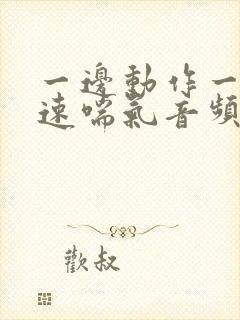 一邊動作一
速喘氣音頻
歡叔